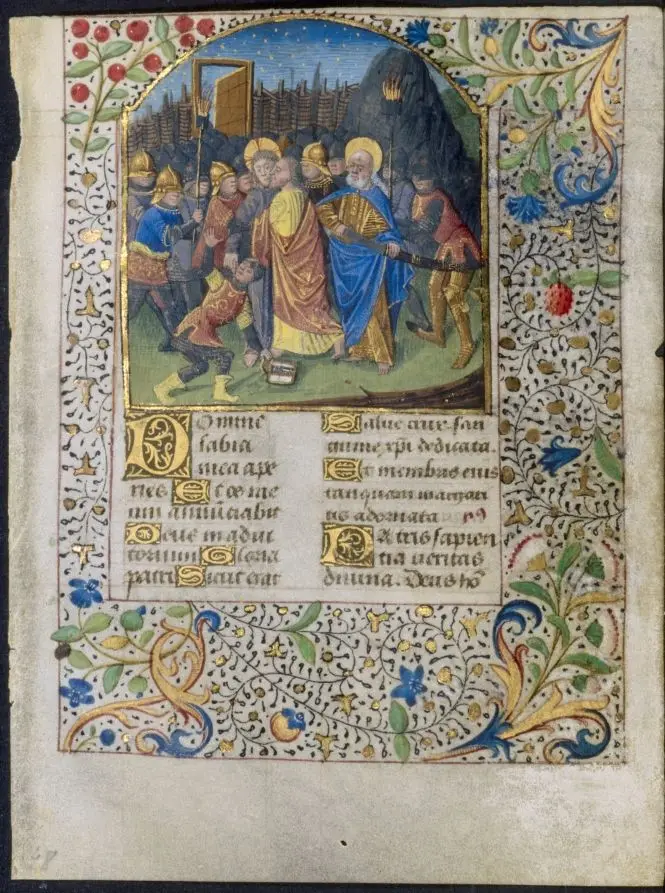 Domine
labia
mea ape
ries Et os me
um annunciabit
Deus in adiu
torium Gloria
patri Sicut erat
Salve crux san
guine xpi dedicata.
Et membris eius
tanquam margari
tis adornata
Patris sapien
tia veritas
divina. Deus ho